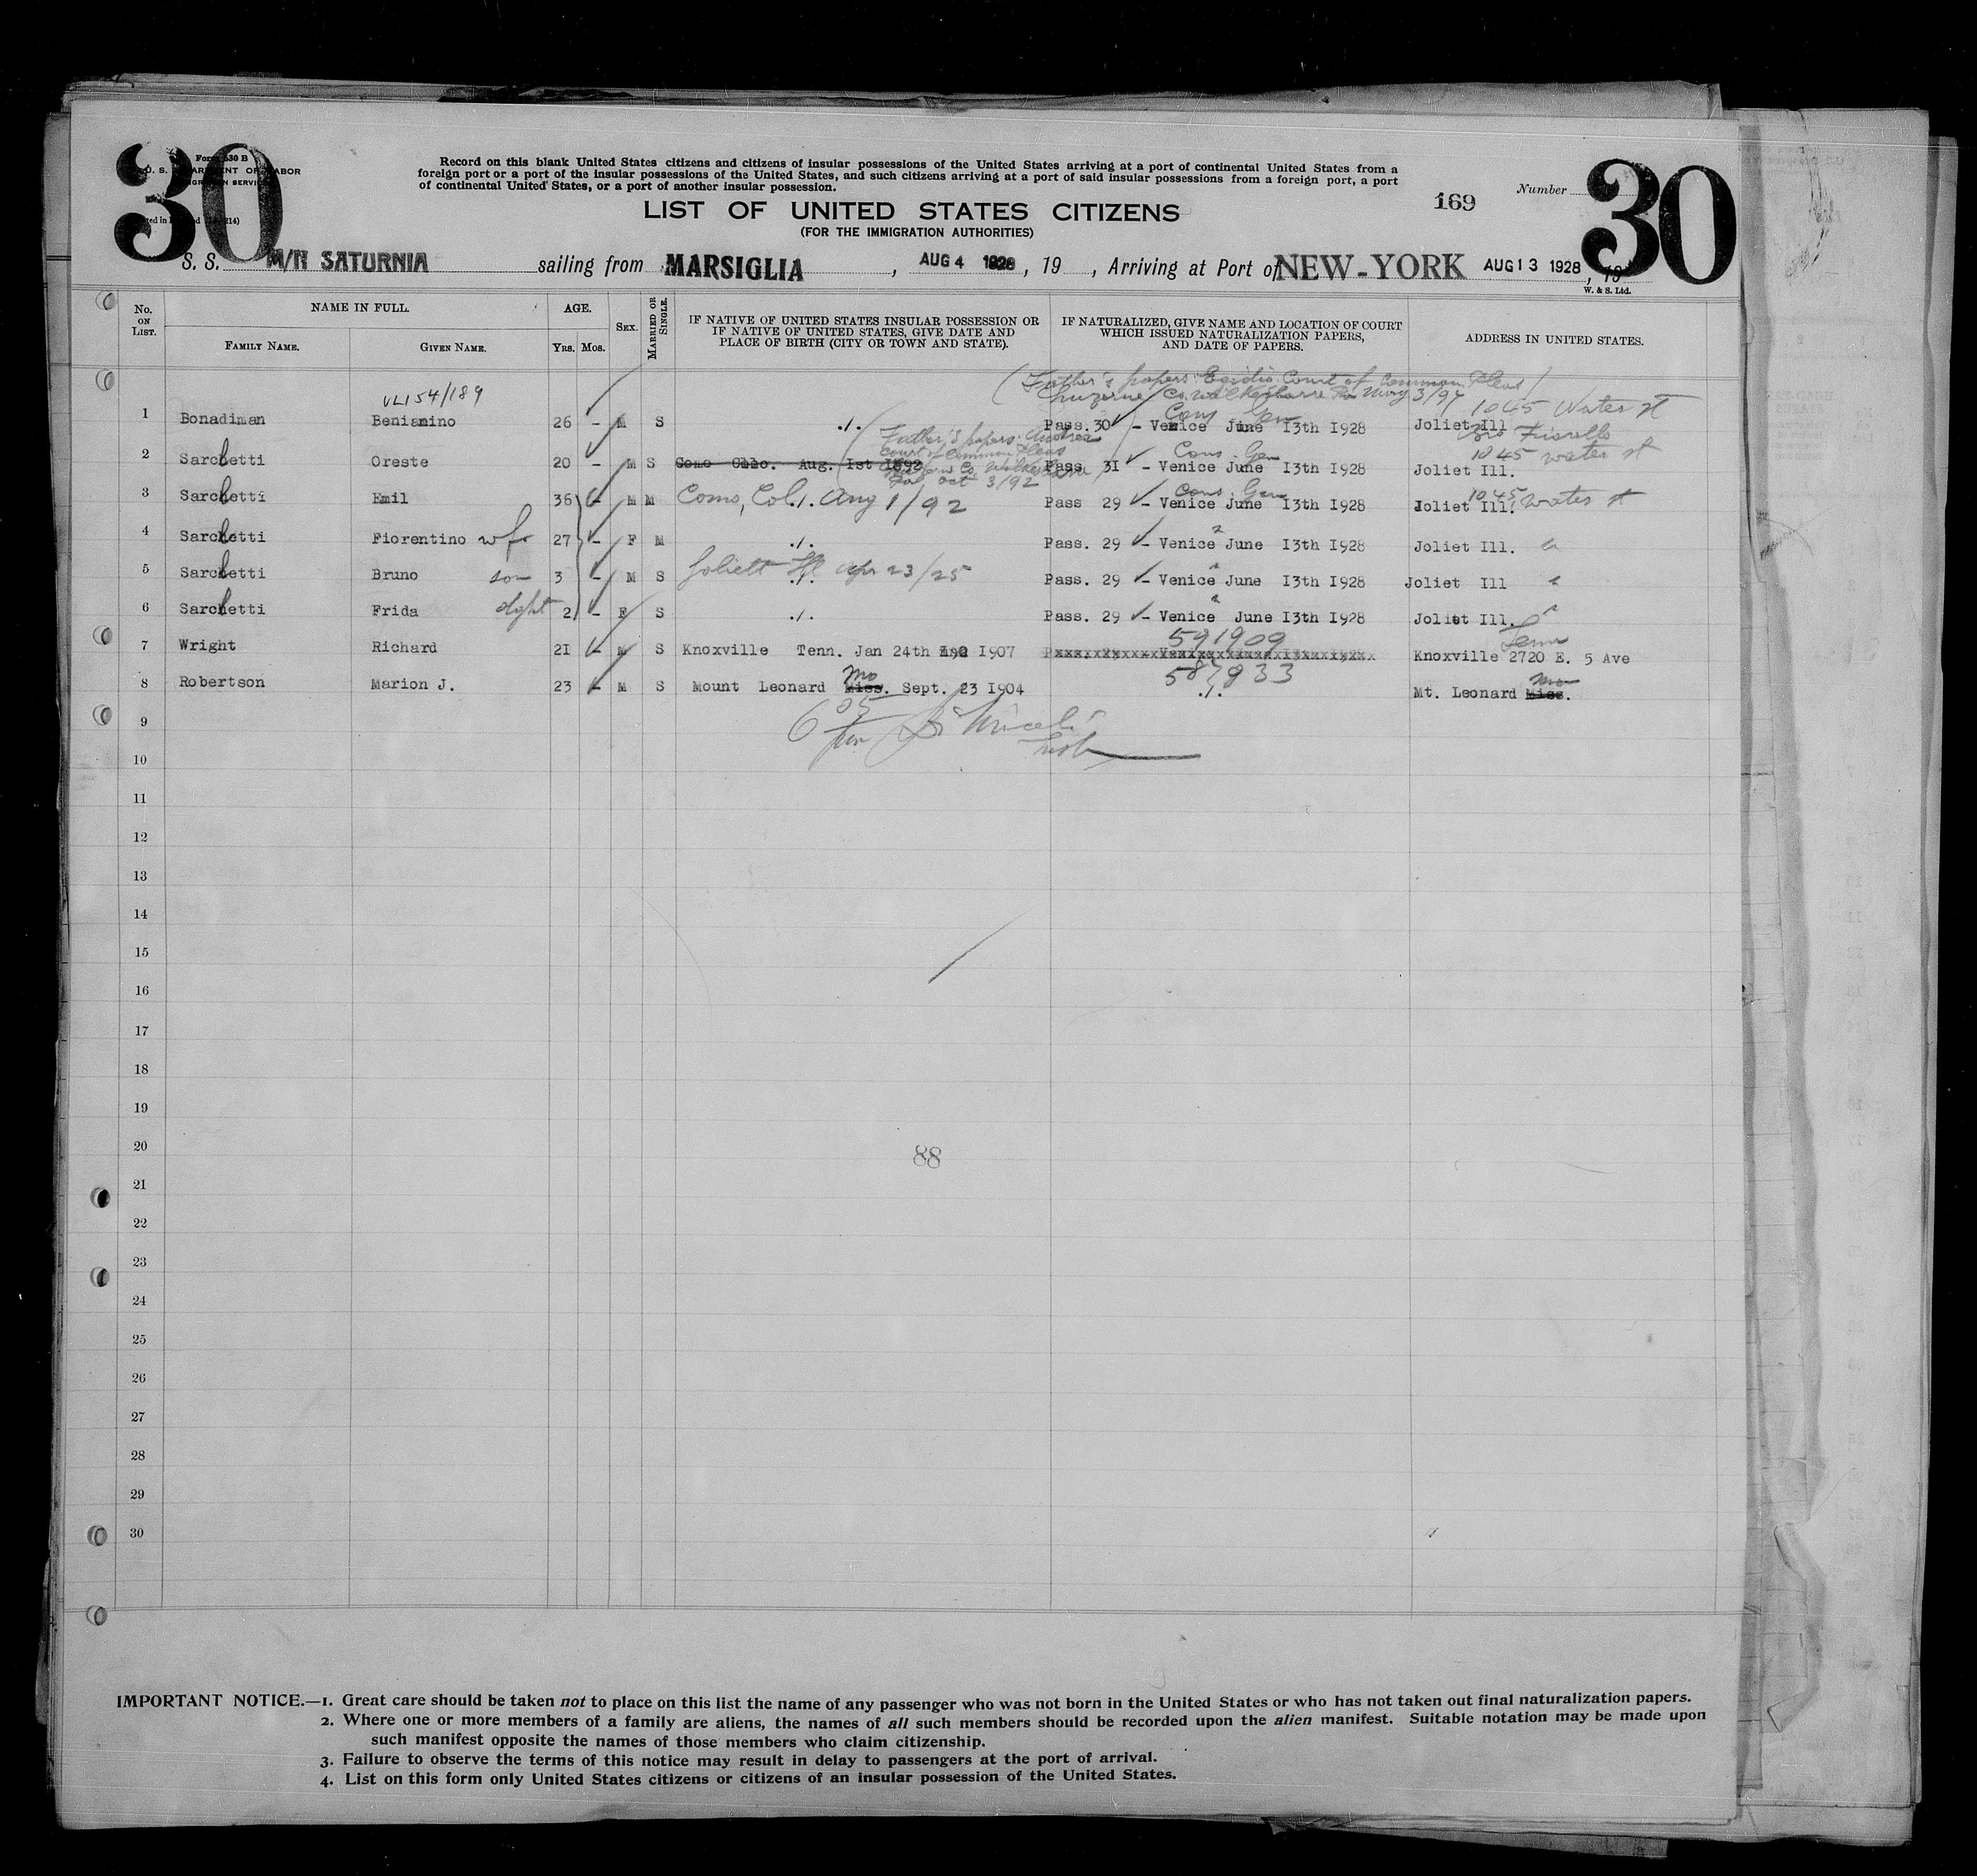 30
Form 630 B
U. S. DEPARTMENT OF LABOR
IMMIGRATION SERVICE
Record on this blank United States citizens and citizens of insular possessions of the United States arriving at a port of continental United States from a
foreign port or a port of the insular possessions of the United States, and such citizens arriving at a port of said insular possessions from a foreign port, a port
of continental United States, or a port of another insular possession.
169
Number
30
LIST OF UNITED STATES CITIZENS
(FOR THE IMMIGRATION AUTHORITIES)
S. S. M/N SATURNIA sailing from MARSIGLIA, AUG 4 1928, 19 , Arriving at Port of NEW-YORK AUG 13 1928, 19
W. & S. Ltd.
No. ON LIST. NAME IN FULL. AGE. SEX. MARRIED OR SINGLE. IF NATIVE OF UNITED STATES INSULAR POSSESSION OR IF NATIVE OF UNITED STATES, GIVE DATE AND PLACE OF BIRTH (CITY OR TOWN AND STATE). IF NATURALIZED, GIVE NAME AND LOCATION OF COURT WHICH ISSUED NATURALIZATION PAPERS, AND DATE OF PAPERS. ADDRESS IN UNITED STATES.
FAMILY NAME. GIVEN NAME. Yrs. Mos.
(Father's papers: Egidio Court of Common Pleas)
VL154/189 Luzerne Co. Wilkesbarre Pa May 3/97
1045 Water st
Cons Gen
1 Bonadiman Beniamino 26 - M S ./. Pass. 30 - Venice June I3th I928 Joliet Ill
Father's papers: Andrea
Court of Common Pleas
Cons. Gen 1045 Water st
2 Sarchetti Oreste 20 - M S Como Ohio. Aug. 1st I892 Pass 3I - Venice June I3th I928 Joliet Ill.
Oct 3/92
Cons. Gen 1045 Water st
3 Sarchetti Emil 36 - M M Como, Col. ./. Aug 1/92 Pass 29 - Venice June I3th I928 Joliet Ill.
4 Sarchetti Fiorentino wf 27 - F M ./. Pass. 29 - Venice June I3th I928 Joliet Ill. "
5 Sarchetti Bruno son 3 - M S Joliett Ill Apr 23/25 ./. Pass. 29 - Venice June I3th I928 Joliet Ill "
6 Sarchetti Frida dght 2 - F S ./. Pass. 29 - Venice June I3th I928 Joliet Ill. "
591909 Tenn
7 Wright Richard 2I - M S Knoxville Tenn. Jan 24th I907 Knoxville 2720 E. 5 Ave
Mo 587933 Mo
8 Robertson Marion J. 23 - M S Mount Leonard Miss. Sept. 23 I904 ./. Mt. Leonard Miss.
9
10
11
12
13
14
15
16
17
18
19
20
88
21
22
23
24
25
26
27
28
29
30
IMPORTANT NOTICE.—1. Great care should be taken not to place on this list the name of any passenger who was not born in the United States or who has not taken out final naturalization papers.
2. Where one or more members of a family are aliens, the names of all such members should be recorded upon the alien manifest. Suitable notation may be made upon
such manifest opposite the names of those members who claim citizenship.
3. Failure to observe the terms of this notice may result in delay to passengers at the port of arrival.
4. List on this form only United States citizens or citizens of an insular possession of the United States.